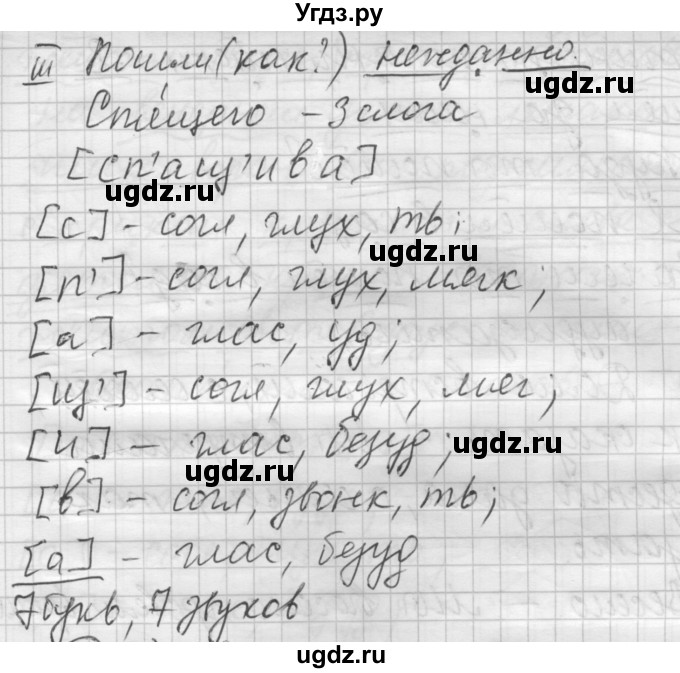 Угдз.ру
III Пошли (как?) нежданно.
ugdz.ru
Спящего – 3 слога
[сп'ащ'ива]
ugdz.ru
[с] – согл, глух, тв;
ugdz.ru
[п'] – согл, глух, мягк;
[а] – глас, уд;
[щ'] – согл, глух, мяг;
[и] – глас, безуд;
ugdz.ru
ugdz.ru
[в] – согл, звонк, тв;
[а] – глас, безуд
7 букв, 7 звуков
ugdz.ru